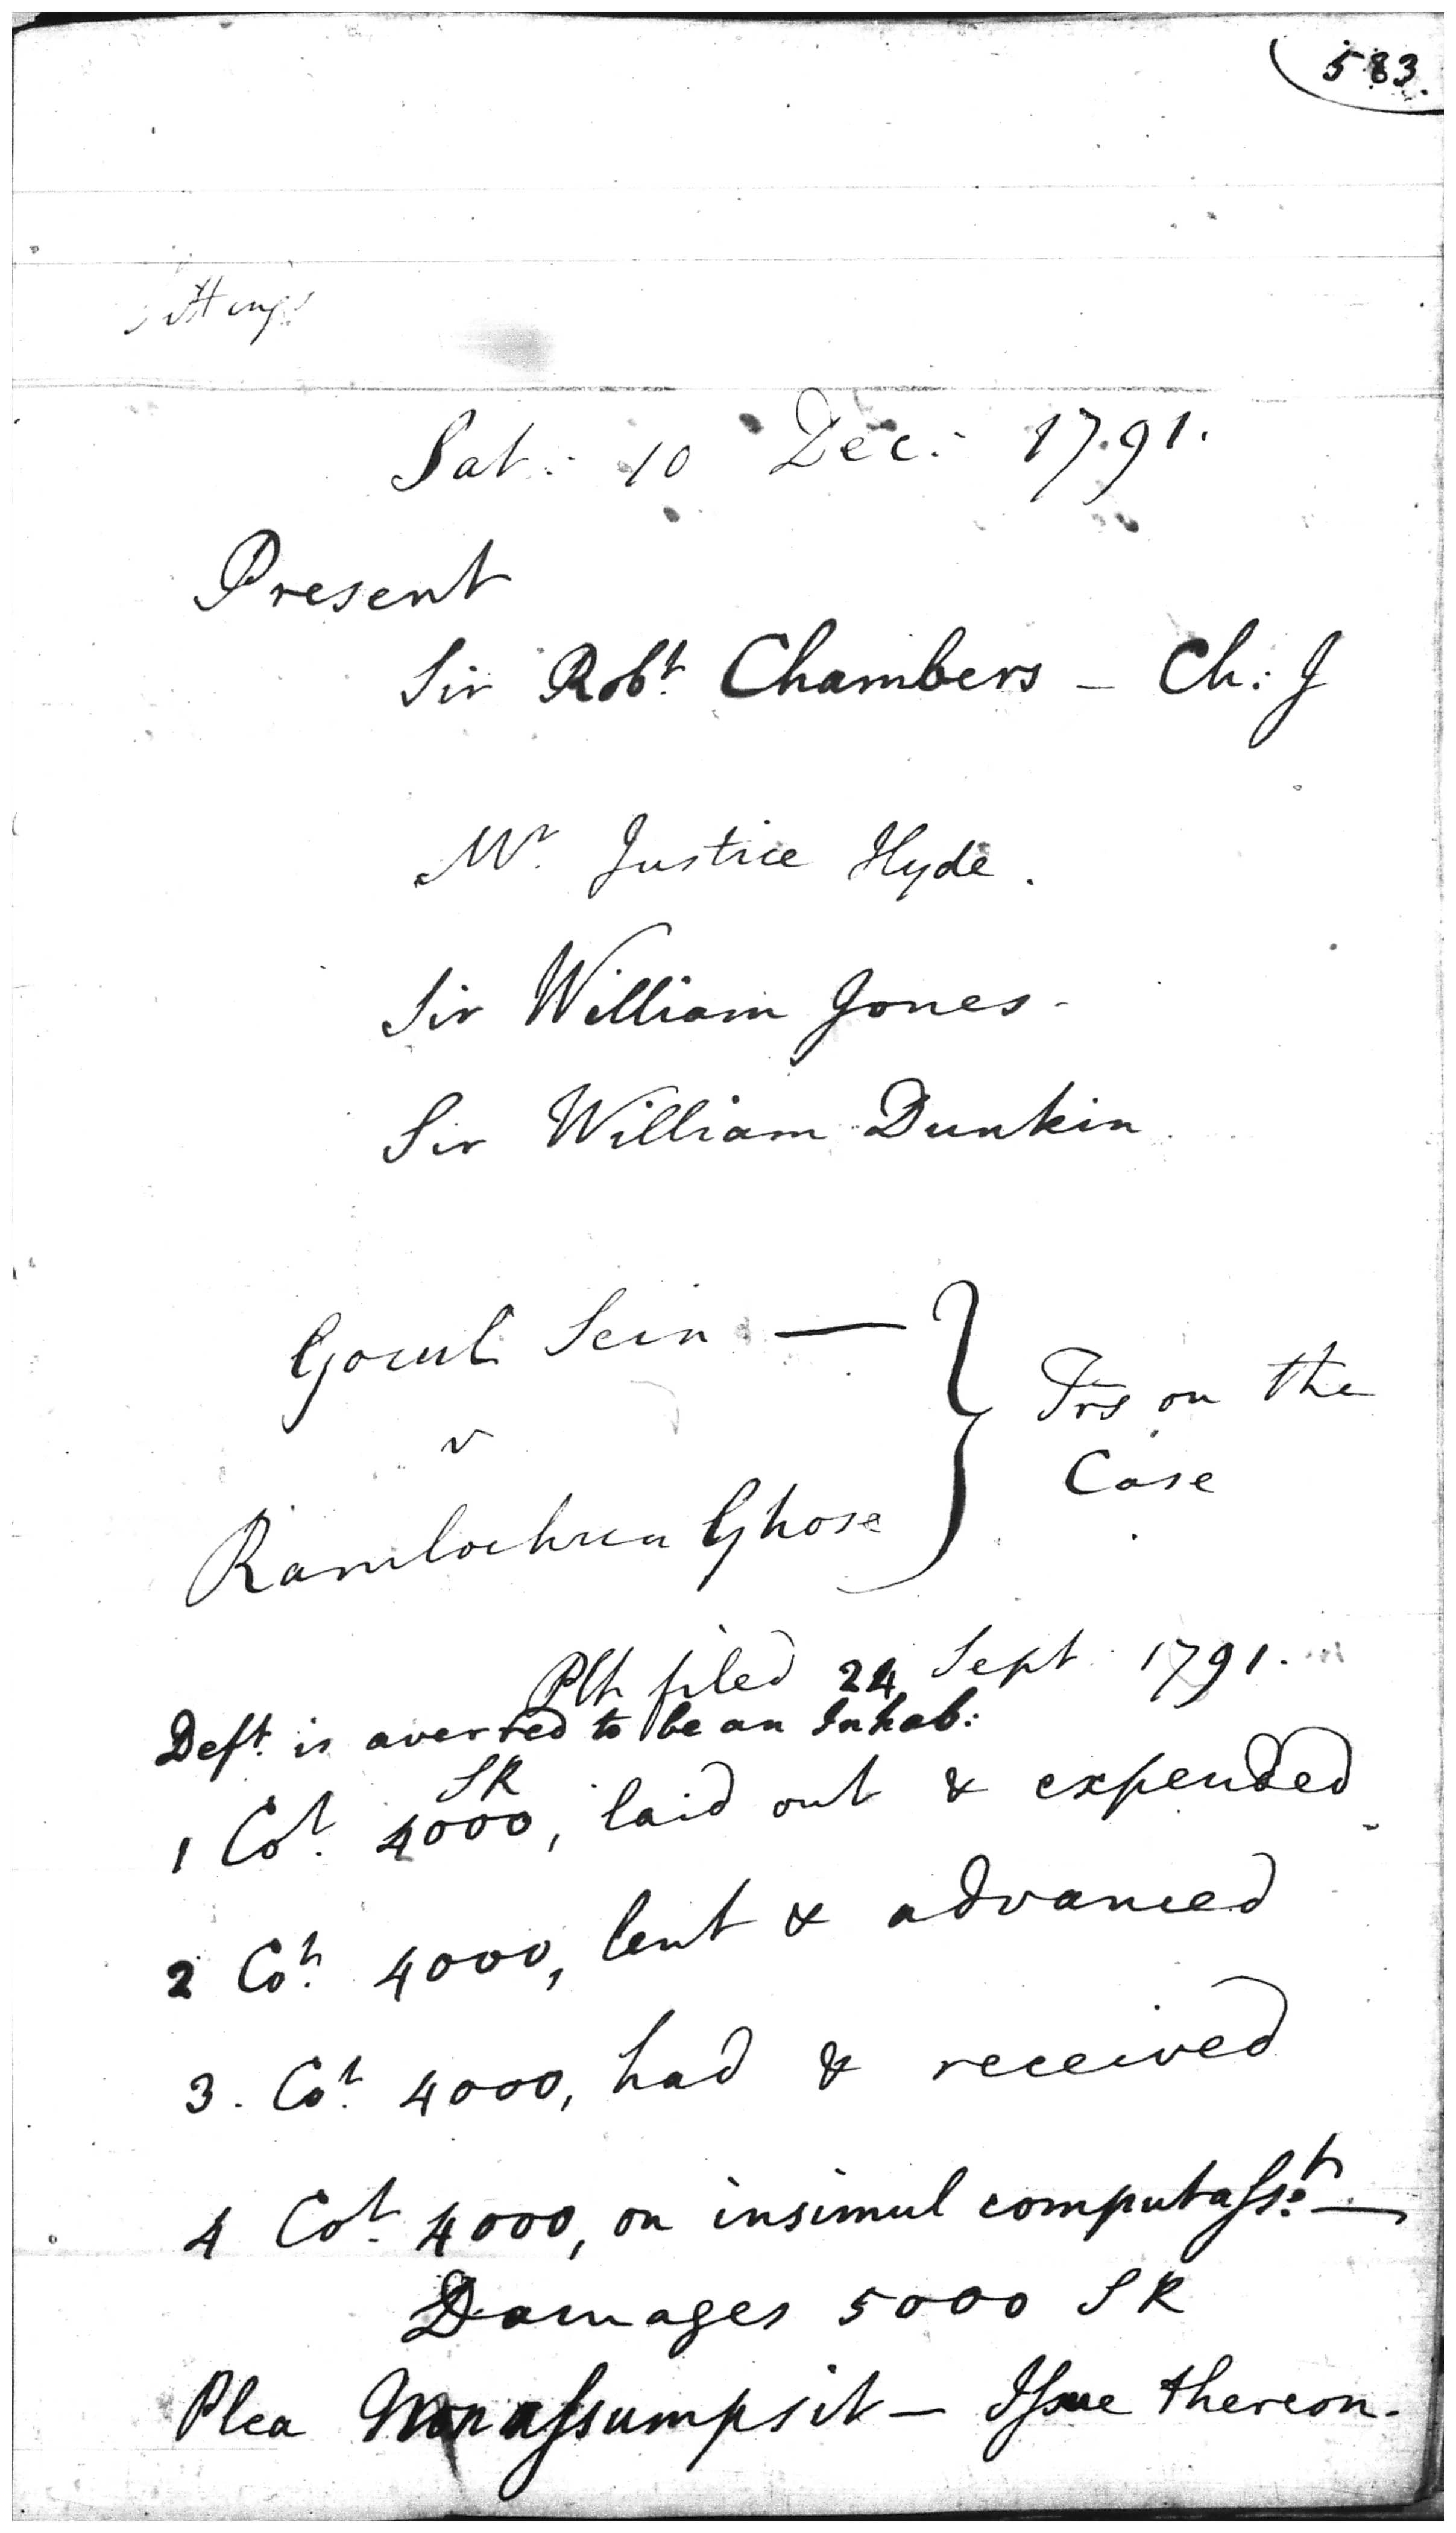 583.
Sittings
Sat: 10 Dec: 1791.
Present
Sir Robt. Chambers - Ch: J
Mr. Justice Hyde.
Sir William Jones -
Sir William Dunkin
Gocul Sein —
v
Ramlochun Ghose
Trs on the
Case
Plt filed 24 Sept 1791.
Deft. is averred to be an Inhab:
SR
1 Cot. 4000, laid out & expended
2 Cot. 4000, lent & advanced
3. Cot. 4000, had & received
4 Cot. 4000, on insimul computasst. —
Damages 5000 SR
Plea Non assumpsit — Issue thereon.